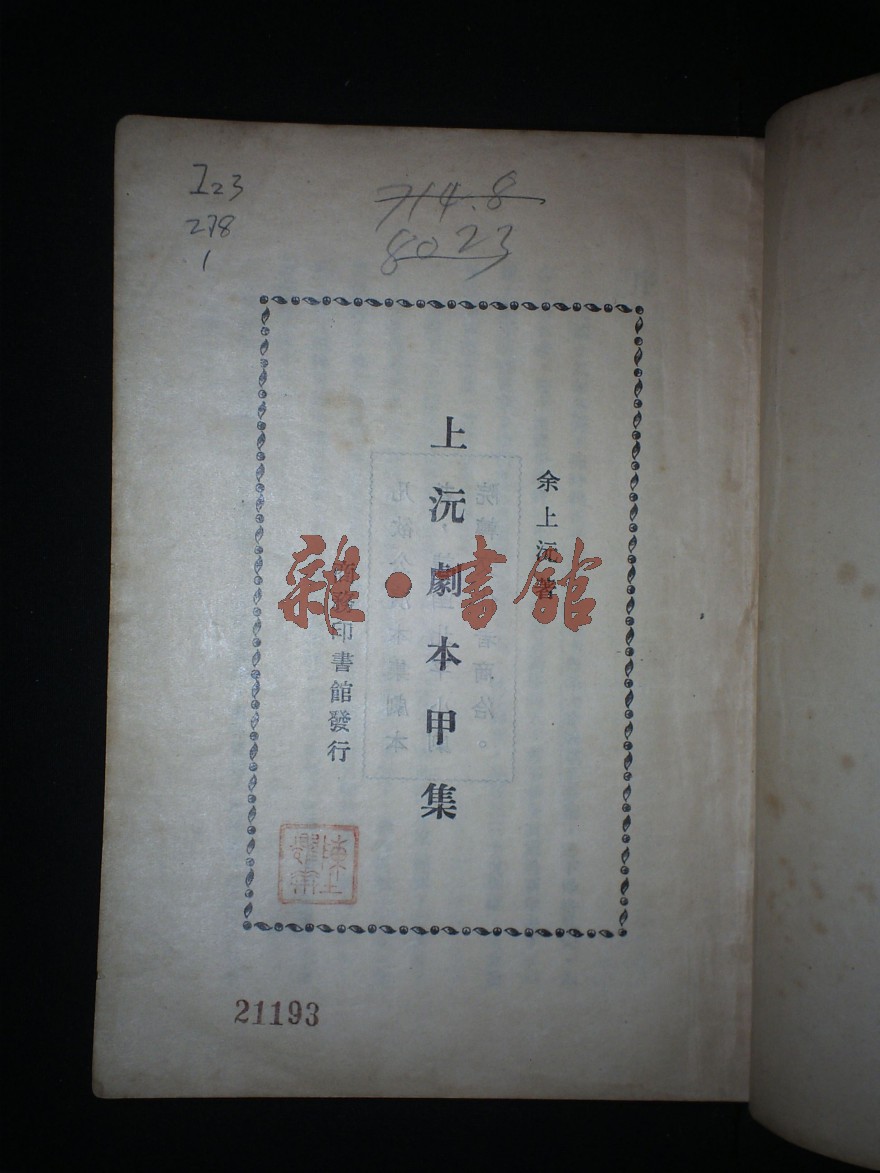 I23
278
1
714.8
8023
余上沅著
上沅劇本甲集
商務印書館發行
雜·書館
21193